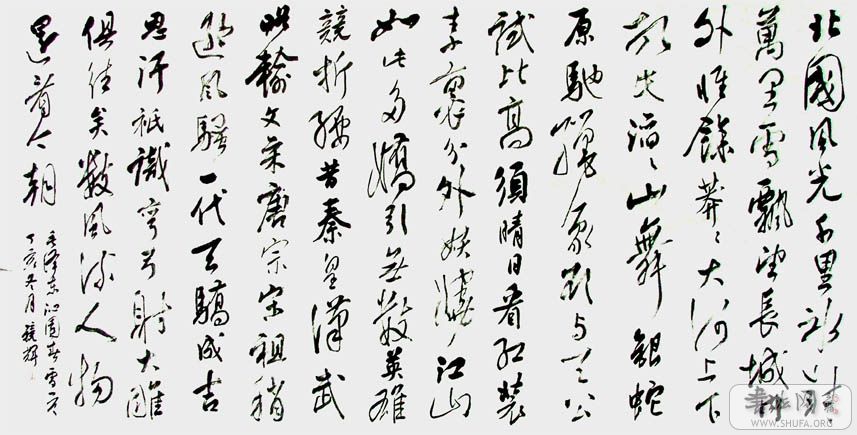 北國風光千里冰封
萬里雪飄望長城内
外惟餘莽々大河上下
頓失滔々山舞銀蛇
原馳蠟象欲與天公
試比高須晴日看紅裝
素裹分外妖嬈江山
如此多嬌引無數英雄
競折腰昔秦皇漢武
略輸文采唐宗宋祖稍
遜風騷一代天驕成吉
思汗祇識彎弓射大雕
俱往矣數風流人物
還看今朝
毛澤東沁園春雪
丁亥冬月
WWW.SHUFA.ORG